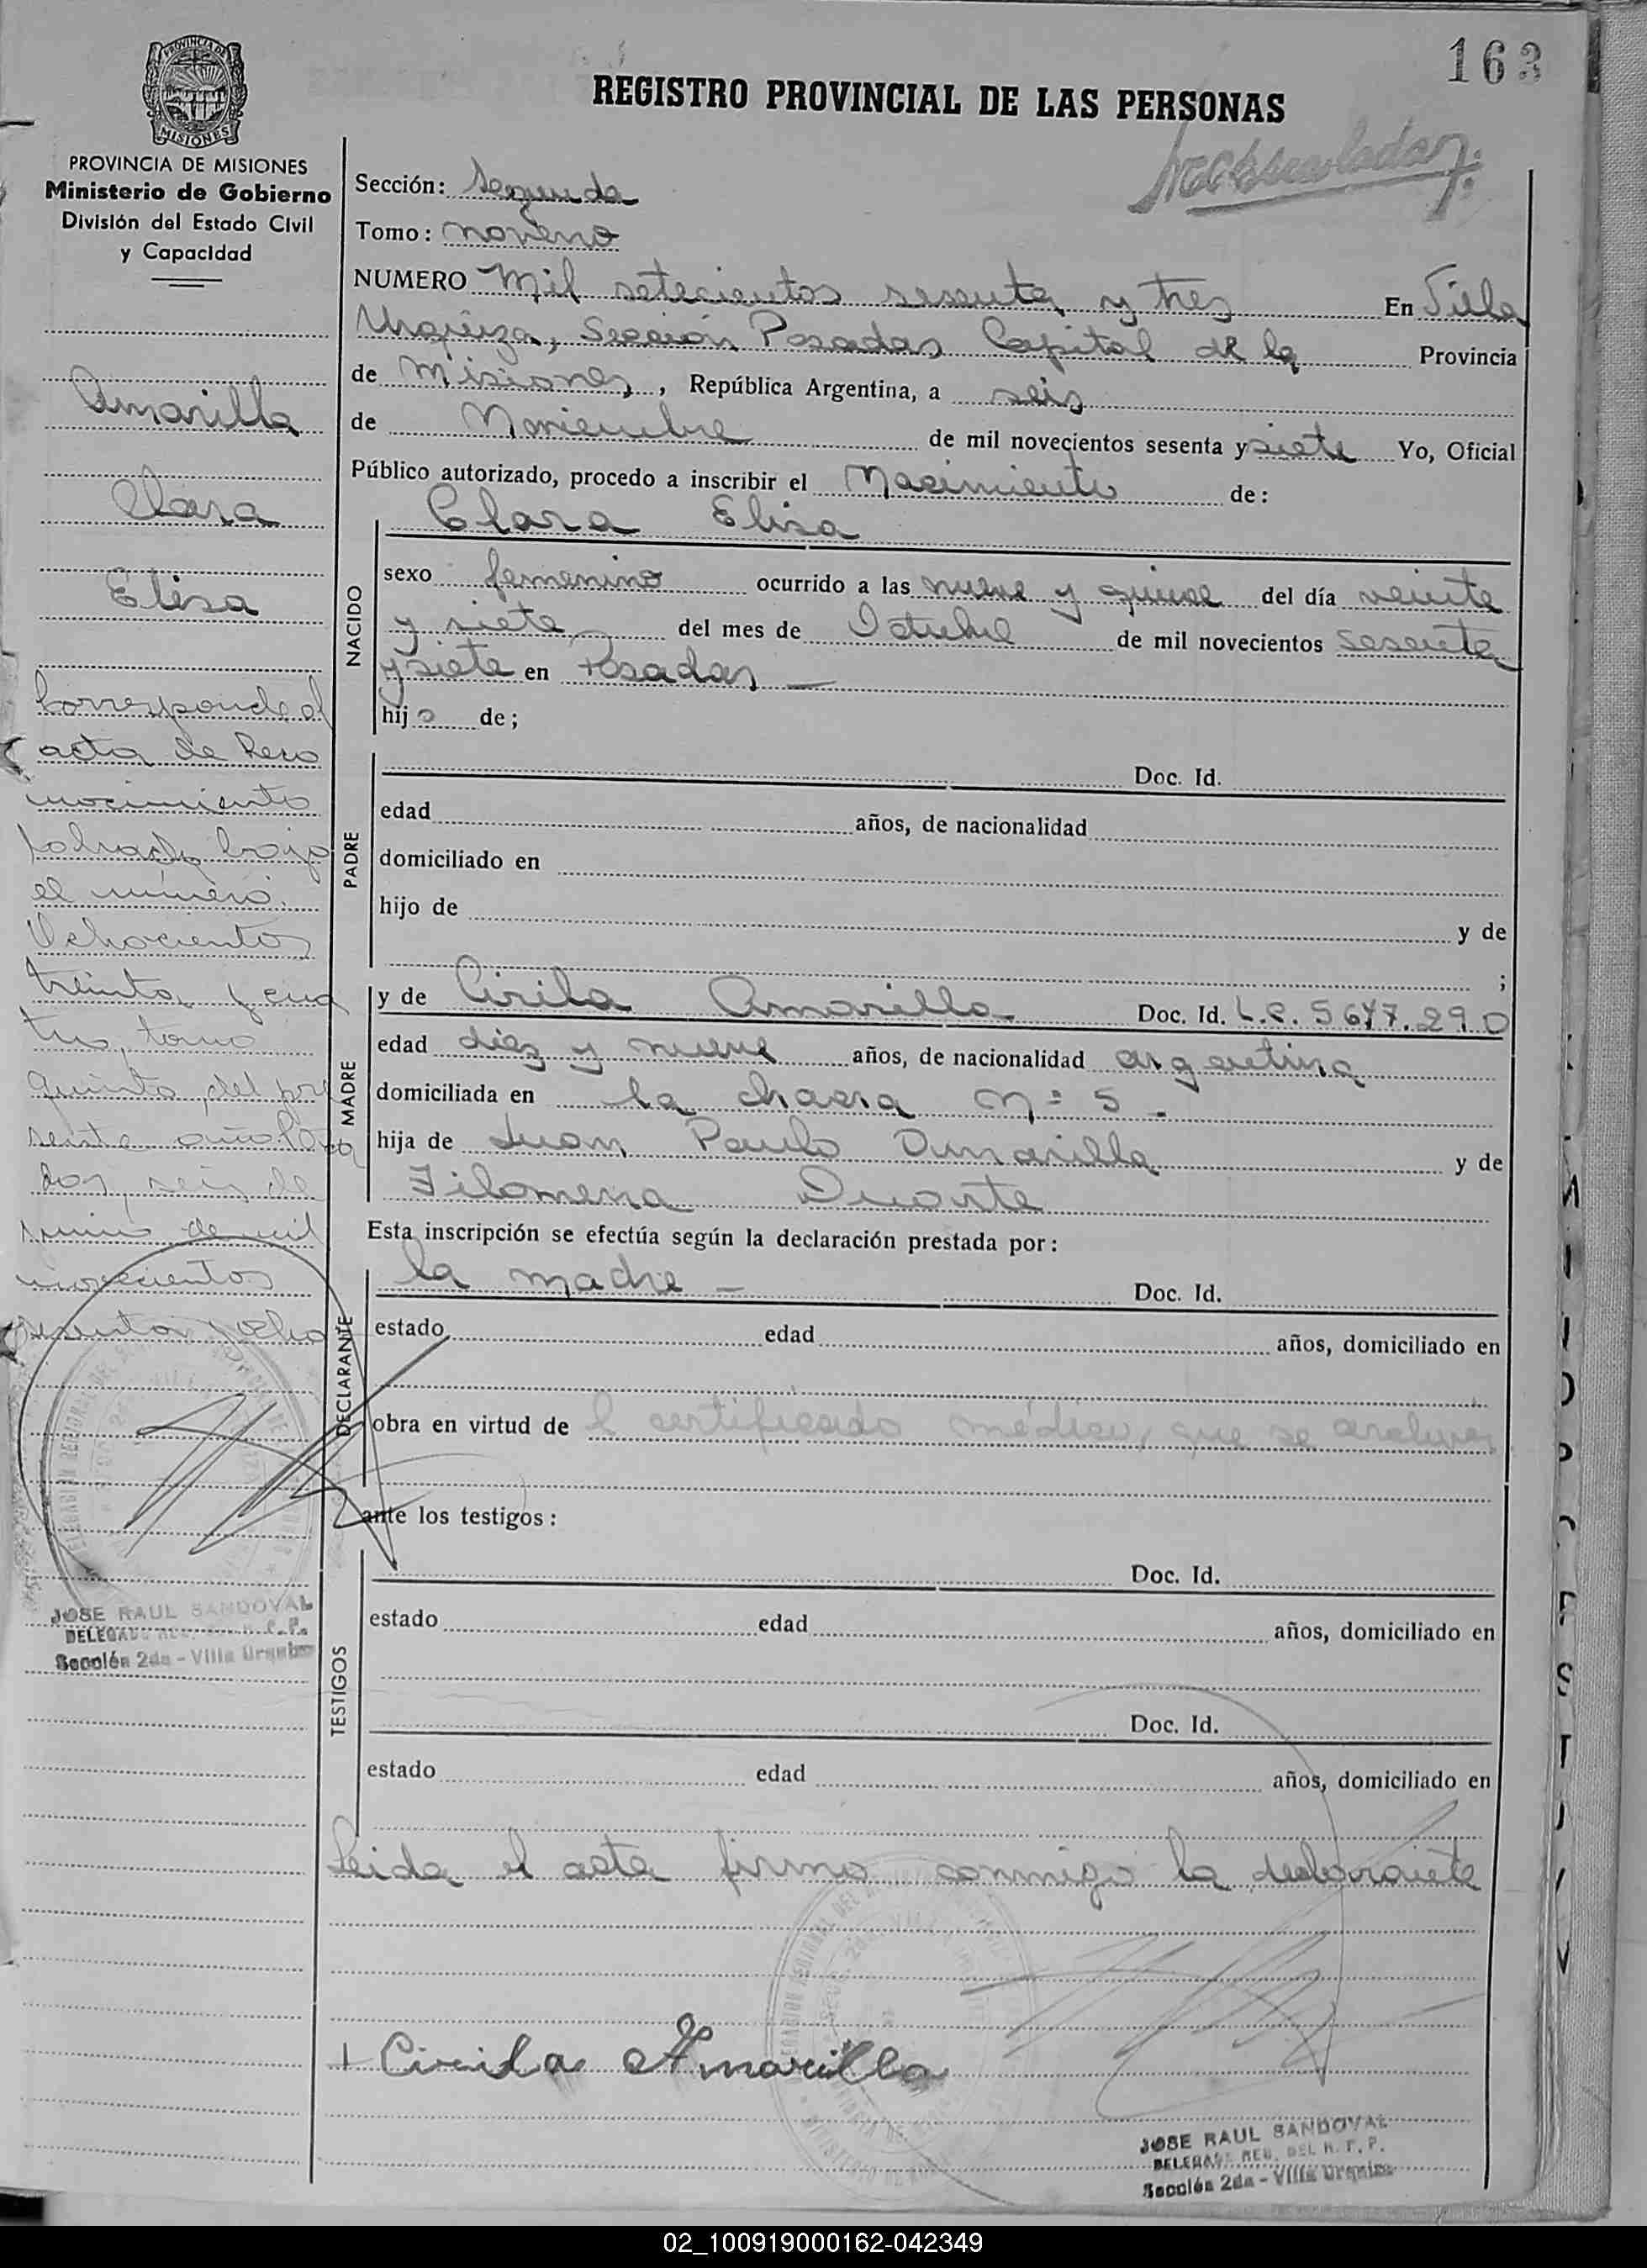 163
REGISTRO PROVINCIAL DE LAS PERSONAS
PROVINCIA DE MISIONES
Ministerio de Gobierno
División del Estado Civil
y Capacidad
Amarilla
Clara
Elisa
Corresponde al
acta de Reco
nocimiento
labrada bajo
el número
Ochocientos
treinta y cua
tro, tomo
quinto, del pre
sente año Posa
das, seis de
junio de mil
novecientos
sesenta y ocho
JOSE RAUL SANDOVAL
DELEGADO REG. DEL R. P. P.
Sección 2da - Villa Urquiza
Sección: Segunda
Tomo: noveno
NUMERO Mil setecientos sesenta y tres En Villa
Urquiza, Sección Posadas Capital de la Provincia
de Misiones, República Argentina, a seis
de Noviembre de mil novecientos sesenta y siete Yo, Oficial
Público autorizado, procedo a inscribir el Nacimiento de:
Clara Elisa
NACIDO
sexo femenino ocurrido a las nueve y quince del día veinte
y siete del mes de Octubre de mil novecientos sesenta
y siete en Posadas —
hija de;
PADRE
Doc. Id.
edad años, de nacionalidad
domiciliado en
hijo de y de
;
MADRE
y de Cirila Amarilla Doc. Id. L.C. 5.677.290
edad diez y nueve años, de nacionalidad argentina
domiciliada en la chacra nº 5.
hija de Juan Paulo Amarilla y de
Filomena Duarte
Esta inscripción se efectúa según la declaración prestada por:
DECLARANTE
la madre — Doc. Id.
estado edad años, domiciliado en
obra en virtud de l certificado médico, que se archiva
ante los testigos:
TESTIGOS
Doc. Id.
estado edad años, domiciliado en
Doc. Id.
estado edad años, domiciliado en
Leida el acta firma conmigo la declarante
Cirila Amarilla
JOSE RAUL SANDOVAL
DELEGADO REG. DEL R. P. P.
Sección 2da - Villa Urquiza
02_100919000162-042349